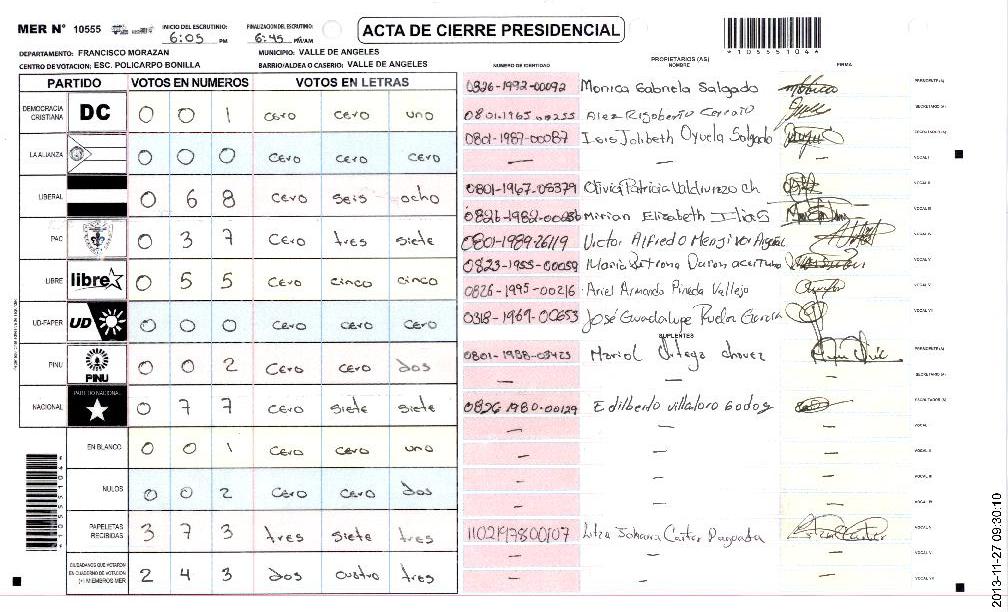 MER N° 10555
INICIO DEL ESCRUTINIO: 6:05 PM
FINALIZACION DEL ESCRUTINIO: 6:45 PM/AM
ACTA DE CIERRE PRESIDENCIAL
10555104
DEPARTAMENTO: FRANCISCO MORAZAN
MUNICIPIO: VALLE DE ANGELES
CENTRO DE VOTACION: ESC. POLICARPO BONILLA
BARRIO/ALDEA O CASERIO: VALLE DE ANGELES
PARTIDO VOTOS EN NUMEROS VOTOS EN LETRAS
DEMOCRACIA CRISTIANA DC 0 0 1 cero cero uno
LA ALIANZA 0 0 0 cero cero cero
LIBERAL 0 6 8 cero seis ocho
PAC 0 3 7 cero tres siete
LIBRE libre 0 5 5 cero cinco cinco
UD-FAPER UD 0 0 0 cero cero cero
PINU PINU 0 0 2 cero cero dos
NACIONAL PARTIDO NACIONAL 0 7 7 cero siete siete
EN BLANCO 0 0 1 cero cero uno
NULOS 0 0 2 cero cero dos
PAPELETAS RECIBIDAS 3 7 3 tres siete tres
CIUDADANOS QUE VOTARON EN CUADERNO DE VOTACION (+) MIEMBROS MER 2 4 3 dos cuatro tres
NUMERO DE IDENTIDAD PROPIETARIOS (AS) NOMBRE FIRMA
0826-1992-00092 Monica Gabriela Salgado PRESIDENTE(A)
0801-1965-00255 Alex Rigoberto SECRETARIO (A)
0801-1987-00087 Isis Oyuela Salgado
— — — VOCAL I
0801-1967-05379 Olivia Patricia ch VOCAL II
Mirian Elizabeth VOCAL III
0801-1989-26119 Victor Alfredo VOCAL IV
0823-1955-00059 Maria VOCAL V
0826-1995-00216 Ariel Armando Pineda Vallejo
0318-1969-00653 José Guadalupe Garcia
SUPLENTES
Mariol Ortega chavez PRESIDENTE(A)
— — — SECRETARIO (A)
0826 1980-00129 Edilberto Godoy
— — — VOCAL I
— — — VOCAL II
— — — VOCAL III
— — — VOCAL IV
Johana VOCAL V
— — — VOCAL VI
— — — VOCAL VII
2013-11-27 09:30:10